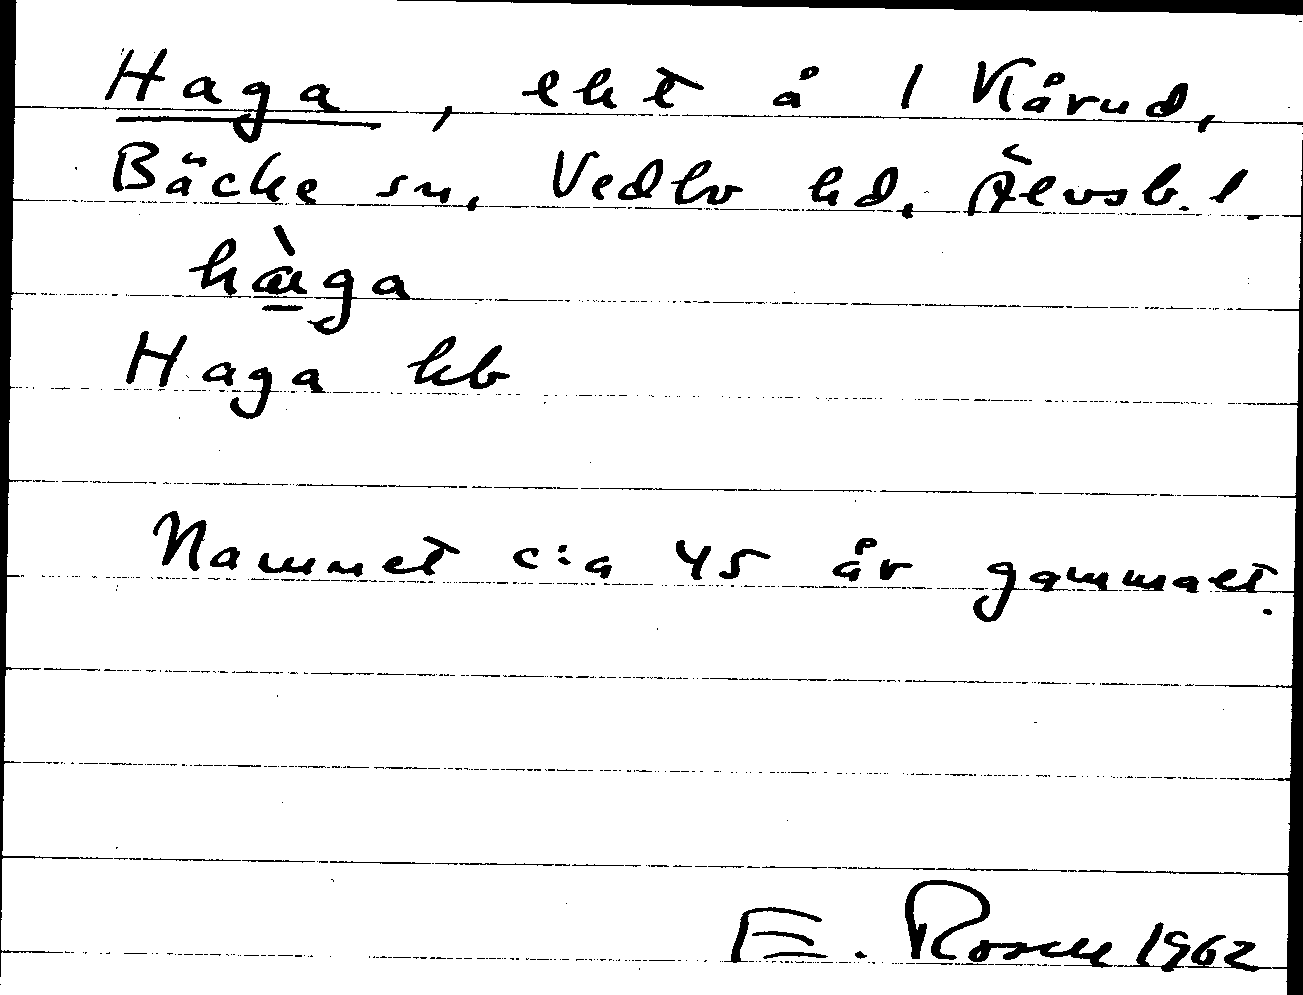 Haga, lht å 1 Kårud,
Bäcke sn, Vedbo hd, Älvsb. l.
hàga
Haga kb
Namnet c:a 45 år gammalt.
E. Rosell 1962